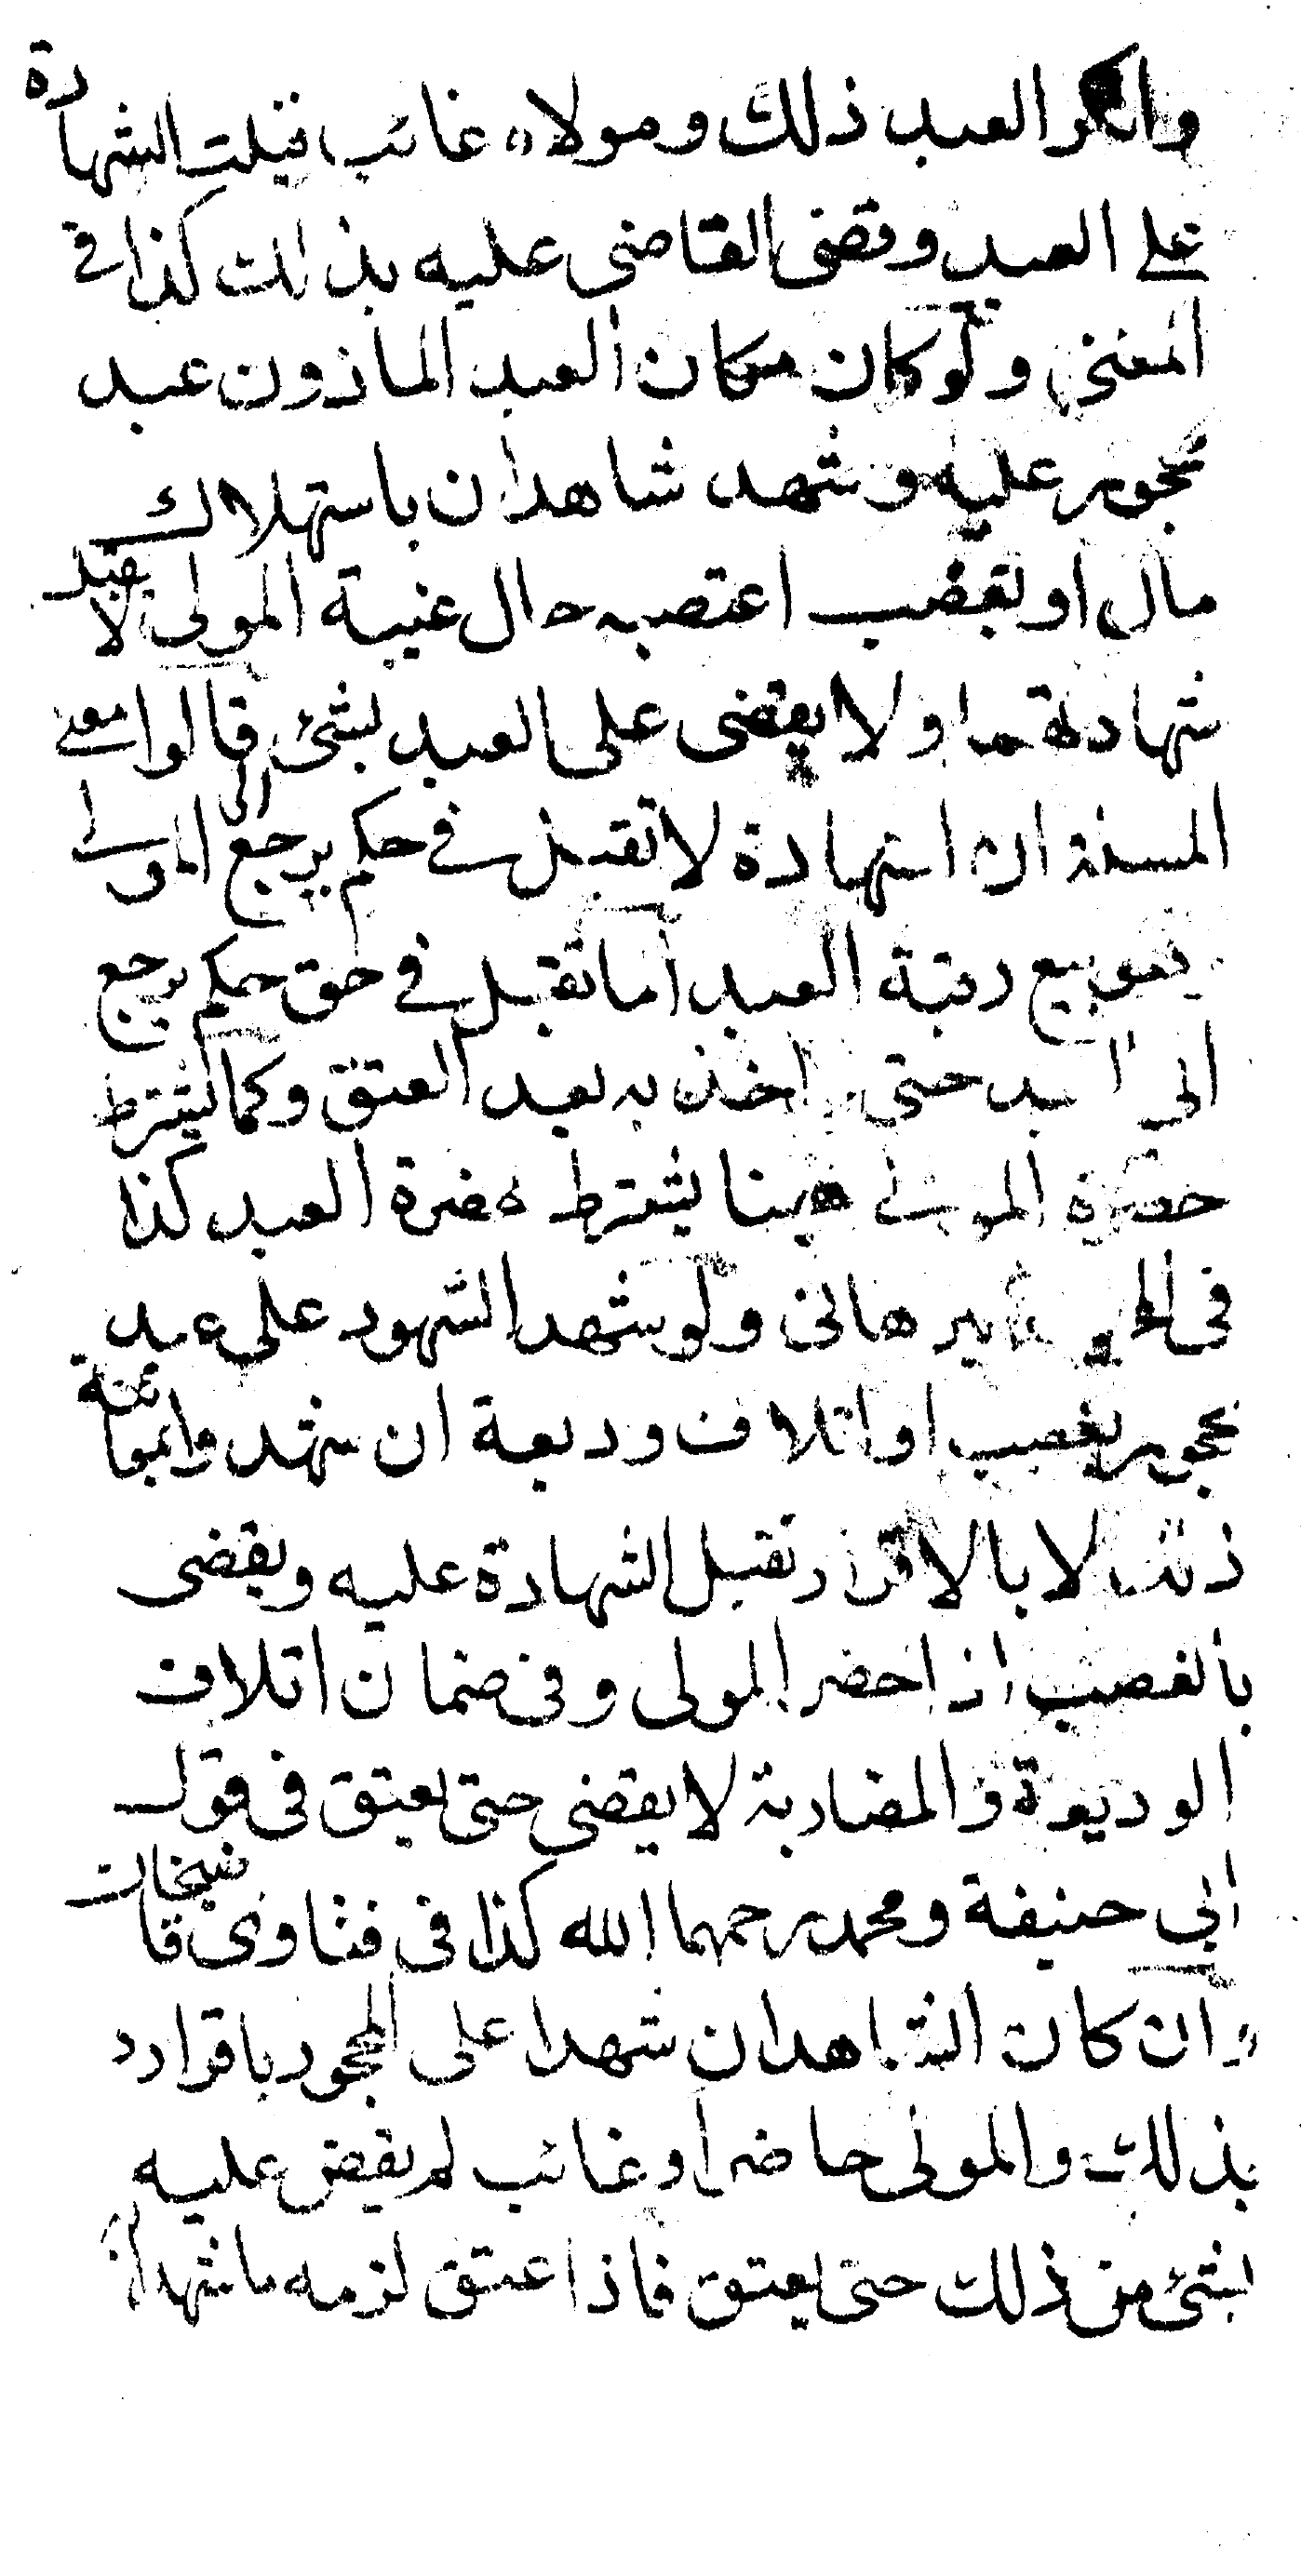 وانكر العبد ذلك ومولاه غائب قبلت الشهادة
على العبد وقضى القاضى عليه بذلك كذا فى
المغنى ولو كان مكان العبد الماذون عبد
محجور عليه وشهد شاهدان باستهلاك
مال او بغصب اغتصبه حال غيبة المولى لا يقبل
شهادتهما ولا يقضى على العبد بشئ قالوا معنى
المسئلة ان الشهادة لا تقبل فى حكم يرجع الى المولى
بيع رقبة العبد اما تقبل فى حق حكم يرجع
الى العبد حتى يؤاخذ به بعد العتق وكما يشترط
حضرة المولى ههنا يشترط حضرة العبد كذا
فى برهانى ولو شهد الشهود على عبد
محجور بغصب او اتلاف وديعة ان شهدوا بمعاينة
ذلك لا بالاقرار تقبل الشهادة عليه ويقضى
بالغصب اذا حضر المولى وفى ضمان اتلاف
الوديعة والمضاربة لا يقضى حتى يعتق فى قول
ابي حنيفة ومحمد رحمهما الله كذا فى فتاوى قاضيخان
وان كان الشاهدان شهدا على المحجور باقراره
بذلك والمولى حاضر او غائب لم يقض عليه
بشئ من ذلك حتى يعتق فاذا عتق لزمه ما شهدا